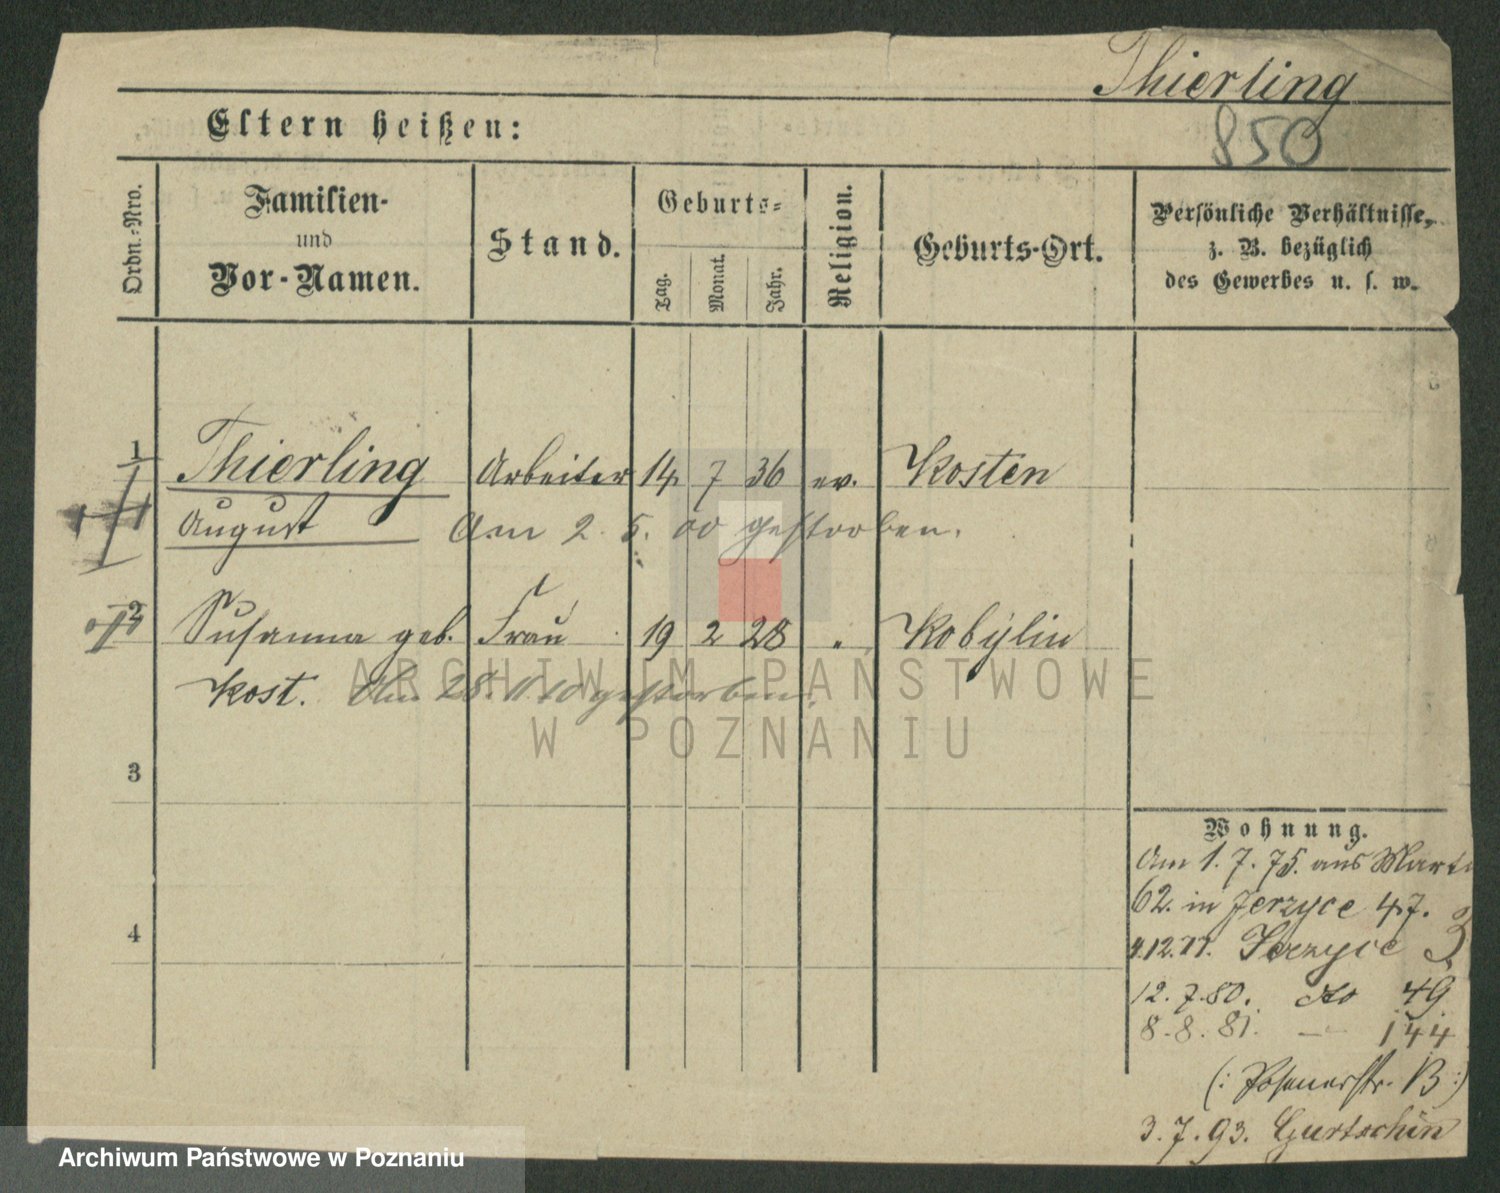 Thierling
850
Eltern heißen:
Ordn.-Nro.
Familien-
und
Vor-Namen.
Stand.
Geburts-
Tag.
Monat.
Jahr.
Religion.
Geburts-Ort.
Persönliche Verhältnisse,
z. B. bezüglich
des Gewerbes u. s. w.
1 Thierling Arbeiter 14. 7 36 ev. Kosten
August Am 2. 5. 00 gestorben.
2 Susanna geb. Frau 19 2 28 " Kobylin
Kost. Am 28. 10 gestorben.
3
4
Wohnung.
Am 1. 7. 75. aus Mart
62. in Jerzyce 47.
4.12.77. Jerzyce 3
12. 7. 80. do 49
8. 8. 81. — 144
(: Posenerstr. B :)
3. 7. 93. Gurtschin
ARCHIWUM PAŃSTWOWE
W POZNANIU
Archiwum Państwowe w Poznaniu